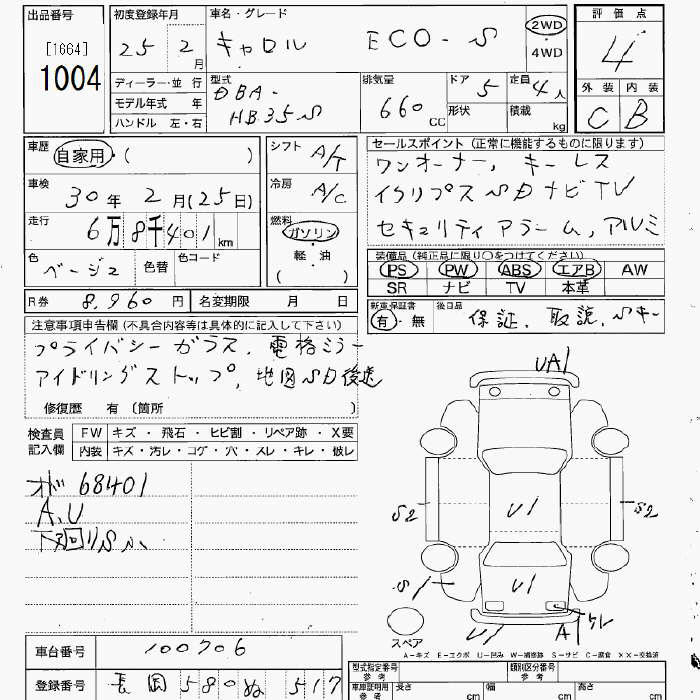 出品番号
[1664]
1004
初度登録年月
25 2月
車名・グレード
キャロル ECO-S
2WD
・
4WD
評価点
4
外装 内装
C B
ディーラー・並行
モデル年式 年
ハンドル 左・右
型式
DBA-
HB35S
排気量
660 CC
ドア 5
形状
定員 4人
積載 kg
車歴
自家用・( )
車検
30年 2月(25日)
走行
6万8千401km
色
ベージュ
色替
色コード
シフト A/T
冷房 A/C
燃料
ガソリン
・
軽油
( )
セールスポイント(正常に機能するものに限ります)
ワンオーナー, キーレス
イクリプスSDナビTV
セキュリティアラーム, アルミ
装備品(純正品に限り○をつけてください)
PS PW ABS エアB AW
SR ナビ TV 本革
R券 8,960円
名変期限 月 日
新車保証書
有・無
後日品
保証. 取説. Sキー
注意事項申告欄(不具合内容等は具体的に記入して下さい)
プライバシーガラス, 電格ミラー
アイドリングストップ, 地図SD後送
修復歴 有 (箇所 )
検査員
記入欄
FW キズ・飛石・ヒビ割・リペア跡・X要
内装 キズ・汚レ・コゲ・穴・スレ・キレ・破レ
オド 68401
A,U
下廻りS小
UA1
S2
U1
S2
S1
U1
ワレ
U1
A1
スペア
A-キズ E-エクボ U-凹み W-補修跡 S-サビ C-腐食 XX-交換済
車台番号 100706
登録番号 長岡 580 ぬ 517
型式指定番号
参考
類別区分番号
参考
車庫証明用
参考
長さ cm
幅 cm
高さ cm